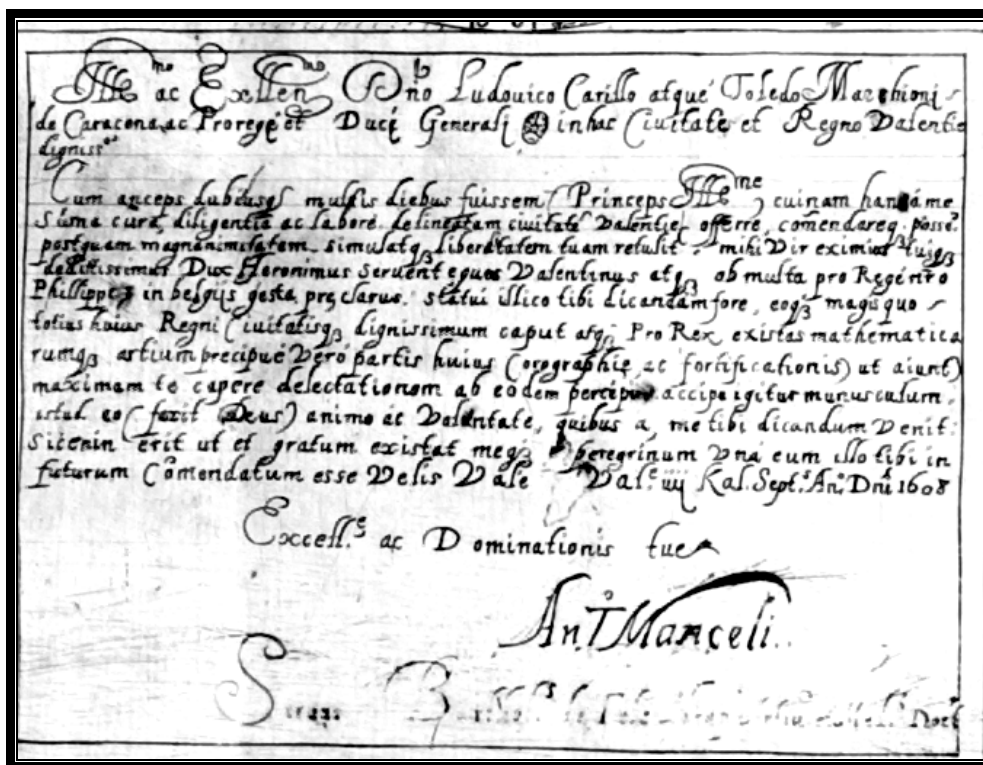 Ill.mo ac Exllen.mo Dño Ludouico Carillo atqué Toledo Marchioni
de Caracena, ac Proregé et Ducj Generalj inhac Ciuitate et Regno Valentie
digniss.o
Cum anceps dubiusq3 multis diebus fuissem (Princeps Ill.me) cuinam hanc á me
Súma cura, diligentia ac labore delineatam ciuitaté Valentie, offerre, comendareq3 possé
postquam magnanimitatem, simulatq3 liberalitatem tuam retulit mihi Vir eximius tuiq3
deditissimus Dux Heronimus Seruent eques Valentinus atq3 ob multa pro Regé nrō
Phillippo 3 in belgijs gesta preclarus. statui illico tibi dicandam fore, eoq3 magis quo
totius huius Regni Ciuitatisq3 dignissimum caput atq3 Pro Rex existas mathematica
rumq3 artium precipué Vero partis huius (orographie ac fortificationis) ut aiunt)
maximam te capere delectationem ab eodem percipio accipe igitur munusculum,
istud eo (faxit Deus) animo ac Valuntate, quibus á me tibi dicandum Venit:
Sicenin erit ut et gratum existat meq3 peregrinum Vná cum illo tibi in
futurum Cōmendatum esse Velis Vale Val.e iiij Kal. Sept.s An.o Dni 1608
Excell.e ac Dominationis tue
An.T Manceli.